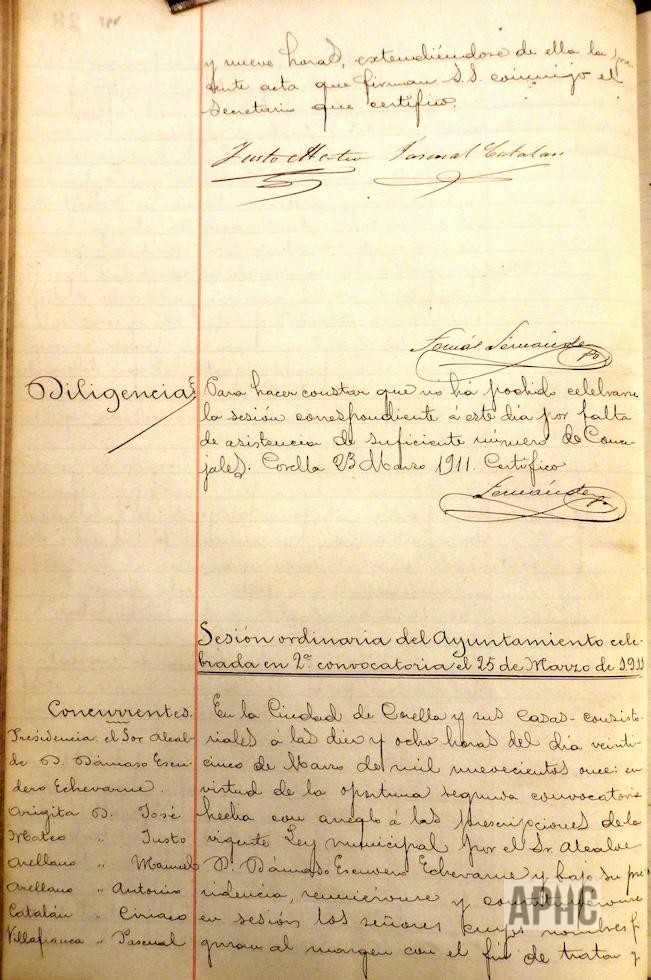 y nueve horas, extendiéndose de ella la pre
sente acta que firman S.S. conmigo el
Secretario que certifico.
Justo Mateo Pascual Catalan
Tomás Fernández
Diligencia
Para hacer constar que no há podido celebrarse
la sesión correspondiente á este dia por falta
de asistencia de suficiente número de Conce-
jales. Corella 23 Marzo 1911. Certifico
Fernández
Sesión ordinaria del Ayuntamiento cele-
brada en 2ª convocatoria el 25 de Marzo de 1911
Concurrentes.
Presidencia el Sor Alcal-
de D. Dámaso Escu-
dero Echevarne.
Arigita D. José
Mateo " Justo
Arellano " Manuel
Arellano " Antonino
Catalán " Ciriaco
Villafranca " Pascual
En la Ciudad de Corella y sus Casas-consisto-
riales á las diez y ocho horas del dia veinti-
cinco de Marzo de mil nuevecientos once: en
virtud de la oportuna segunda convocatoria
hecha con arreglo á las prescripciones de la
vigente Ley municipal por el Sr. Alcalde
D. Dámaso Escudero Echevarne y bajo su pre
sidencia, reuniéronse y constituyéronse
en sesión los señores cuyos nombres fi
guran al margen con el fin de tratar y
APHC